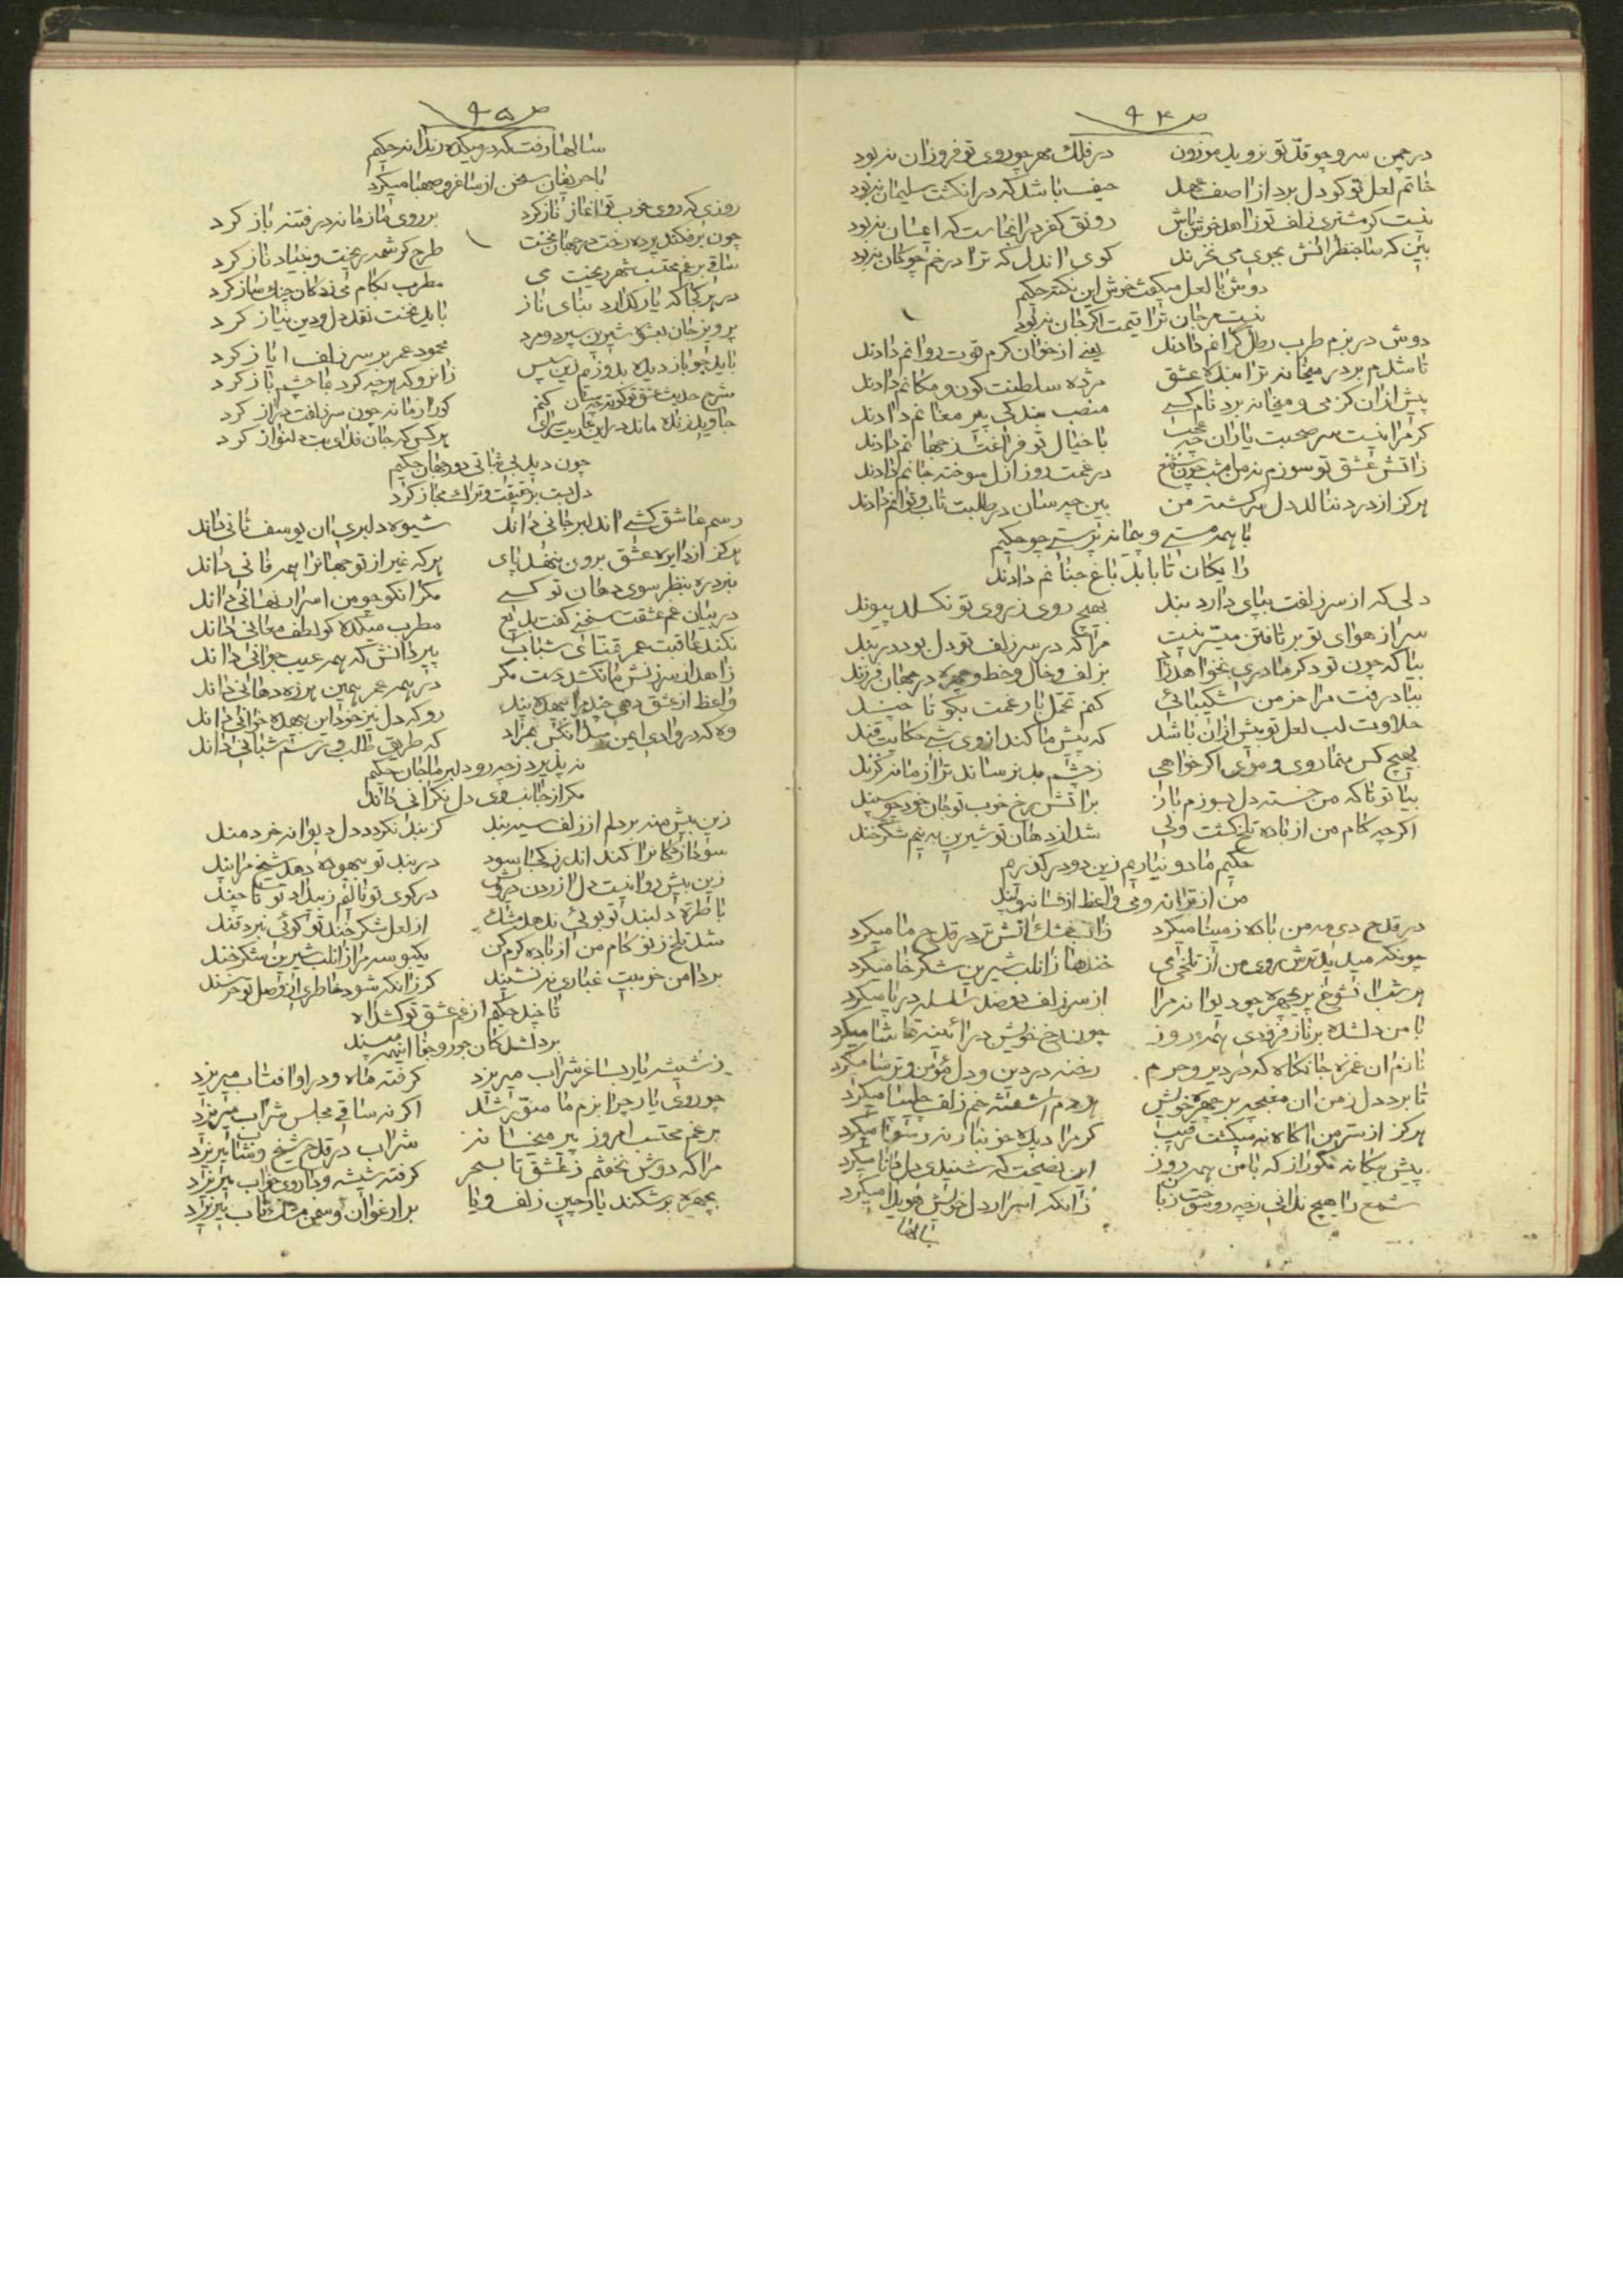 ص ۹۴
در چمن سرو چو قد تو نروید موزون درفلک مهر چو روی تو فروزان نبود
خاتم لعل تو کو دل برد از اصف عهد حیف باشد که در انکشت سلیمان نبود
نیست کر مشتری زلف تو زاهد خوش باش رونق کفر در انجاست که ایمان نبود
بین که صاحبنظرانش بجوی می نخرند کوی اندل که ترا در خم چوکان نبود
دوش با لعل میکفت خوش این نکته حکیم
نیست مرجان ترا قیمت اکر جان نبود
دوش در بزم طرب رطل کرانم دادند یعنی از خوان کرم قوت روانم دادند
تا شدم بر در میخانه ترا بنده عشق مژده سلطنت کون و مکانم دادند
پیش ازان کز می و میخانه برد نام کسی منصب بندکی پیر مغانم دادند
کر مرا نیست سر صحبت یاران چه عجب با خیال تو فراغت ز جهانم دادند
زاتش عشق تو سوزم نه من امشب چون شمع در غمت روز ازل سوخته جانم دادند
هرکز از درد ننالد دل سرکشته من بین چه سان در طلبت تاب و توانم دادند
با همه مستی و پیمانه پرستی چو حکیم
رایکان تا بابد باغ جنانم دادند
دلی که از سر زلفت بپای دارد بند بهیچ روی ز روی تو نکسلد پیوند
سر از هوای تو بر تافتن میسر نیست مرا که در سر زلف تو دل بود در بند
بیا که چون تو دکر مادری نخواهد زاد بزلف و خال و خط و چهره در جهان فرزند
بباد رفت مرا خرمن شکیبائی کنم تحمل بار غمت بکو تا چند
حلاوت لب لعل تو بیش ازان باشد که پیش ما کند از وی شبی حکایت قند
بهیچ کس منما روی و موی اکر خواهی ز چشم بد نرساند ترا زمانه کزند
بیا تو تا که من خسته دل بسوزم باز براتش رخ خوب تو جان خود چو سپند
اکرچه کام من از باده تلخ کشت ولی شد از دهان تو شیرین به نیم شکرخند
حکیم ما دو نیاریم زین دو در کذریم
من از ترانه و می واعظ از فسانه و پند
در قدح دی مه من باده ز مینا میکرد زاب خشک اتش تر در قدح ما میکرد
چونکه میدید ترش روی من از تلخی می خندها زانلب شیرین شکرخا میکرد
هر شب ان شوخ پریچهره چو دیوانه مرا از سر زلف دو صد سلسله در پا میکرد
با من دلشده بر ناز فزودی همه روز چون رخ خویش در ائینه تماشا میکرد
نازم ان غمزه جانکاه که در دیر و حرم رخنه در دین و دل مؤمن و ترسا میکرد
تا برد دل ز من ان مغبچه بر چهره خویش هردم اشفته خم زلف چلیپا میکرد
هرکز از سر من اکاه نمیکشت رقیب کر مرا دیده خونبار نه رسوا میکرد
پیش بیکانه مکو راز که با من همه روز این نصیحت که شنیدی دل دانا میکرد
شمع را هیچ ندانی ز چه رو سوخت زبان زانکه اسرار دل خویش هویدا میکرد
سالها
ص ۹۵
سالها رفت که در میکده رندانه حکیم
با حریفان سخن از ساغر و صهبا میکرد
روزی که روی خوب تو اغاز ناز کرد بر روی ما زمانه در فتنه باز کرد
چون برفکند پرده رخت در جهان بخت طرح کرشمه ریخت و بنیاد ناز کرد
ساقی برغم محتسب شهر ریخت می مطرب بکام می زدکان چنک ساز کرد
در هر کجا که یار کذارد بنای ناز باید نخست نقد دل و دین نیاز کرد
پرویز جان بعشق شیرین سپرد و مرد محمود عمر بر سر زلف ایاز کرد
باید چو باز دیده بدوزم زین سپس زانرو که هر چه کرد بما چشم باز کرد
شرح حدیث عشق تو کوته چه سان کنم کورا زمانه چون سر زلفت دراز کرد
جاوید زنده ماند در این عاریت سرای هر کس که جان فدای بت دلنواز کرد
چون دید بی ثباتی دور جهان حکیم
دل بست بر حقیقت و ترک مجاز کرد
رسم عاشق کشی اندلبر جانی داند شیوه دلبری ان یوسف ثانی داند
هرکز از دایره عشق برون ننهد پای هرکه غیر از تو جهانرا همه فانی داند
نبرد ره بنظر سوی دهان تو کسی مکر انکو چو من اسرار نهانی داند
در بیان غم عشقت سخنی کفت بدیع مطرب میکده کو لطف معانی داند
نکند عاقبت عمر تمنای شباب پیر دانش که همه عیب جوانی داند
زاهد از سرزنش ما نکشد دست مکر در همه عمر همین هرزه دهانی داند
واعظ از عشق دهی چند مرا بیهده پند رو که دل نیز خود این بیهده خوانی داند
وه که در وادی ایمن شد انکس همراد که طریق طلب و رسم شبانی داند
نه پذیرد ز چه رو دلبر ما جان حکیم
مکر از جانب وی دل نکرانی داند
زین بیش منه بر دلم از زلف سیه بند کز بند نکردد دل دیوانه خردمند
سودا زدکانرا کند اندرز کجا سود در بند تو بیهوده دهد شیخ مرا پند
زین بیش روا نیست دل ازردن درویش در کوی تو نالم ز بیداد تو تا چند
با طره دلبند تو بوئی ندهد مشک از لعل شکرخند تو کوئی نبرد قند
شد تلخ ز تو کام من از باده کرم کن یکبوسه مرا زانلب شیرین شکرخند
بر دامن خوبیت غباری نه نشیند کر زانکه شود خاطری از وصل تو خرسند
تا چند حکیم از غم عشق تو کشد اه
بر دلشدکان جور و جفا اینهمه مپسند
ز شیشه یار بساغر شراب میریزد کرفته ماه و در او افتاب میریزد
چو روی یار چرا بزم ما منور شد اکر نه ساقی مجلس شراب میریزد
برغم محتسب امروز پیر میخانه شراب در قدح شیخ و شاب میریزد
مرا که دوش نخفتم ز عشق تا بسحر کرفته شیشه و داروی خواب میریزد
بچهره برشکند یار چین زلف و یا بر ارغوان و سمن مشک ناب میریزد